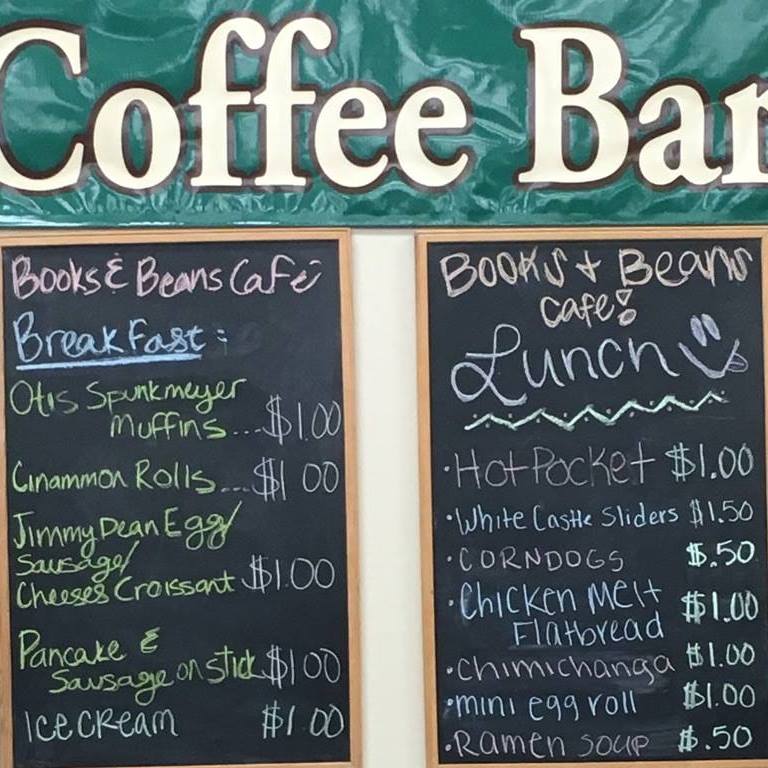 Coffee Bar
Books & Beans Café
Breakfast:
Otis Spunkmeyer
Muffins...$1.00
Cinammon Rolls...$1 00
Jimmy Dean Egg/
Sausage/
Cheeses Croissant $1.00
Pancake &
Sausage on stick $1 00
Ice cream $1.00
Books + Beans
Cafe!
Lunch
·Hot Pocket $1.00
·White Castle Sliders $1.50
·CORNDOGS $.50
·Chicken Melt
Flatbread $1.00
·Chimichanga $1.00
·mini egg roll $1.00
·Ramen soup $.50